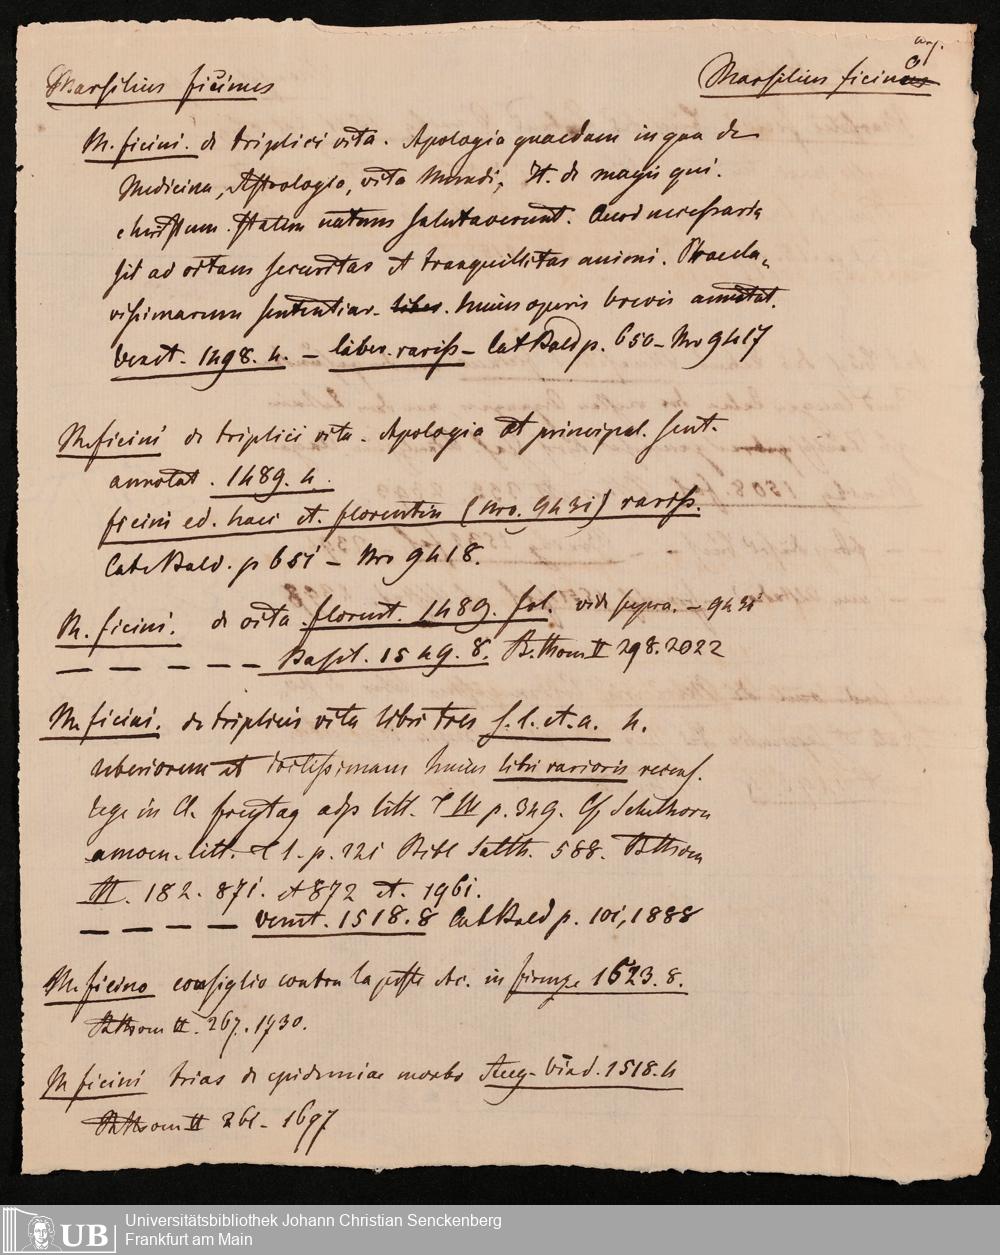 Marsilius ficinus
Marsilius ficinus
M. ficini. de triplici vita. Apologia quaedam in qua de
Medicina, Astrologia, vita Mundi, It. de magis qui.
christum statim natum salutaverunt. Quod necessaria
sit ad vitam securitas et tranquillitas animi. Praecla-
rissimarum sententiar. liber. huius operis brevis annotat.
Venet. 1498. 4. – liber. rariss – Cat Bald p. 650 – Nro 9417
M. ficini de triplici vita. Apologia et principal. sent.
annotat. 1489. 4.
ficini ed. haec et. florentin (Nro. 9431) rariss.
Cat. Bald. p 651 – Nro 9418.
M. ficini. de vita. florent. 1489. fol. vide supra. – 9431
– – – – – Basil. 1549. 8. B. Thom II 298. 2022
M. ficini. de triplici vita libri tres s. l. et. a. 4.
uberiorem et huius libri rarioris recens.
lege in Cl. freytag adp litt. T III p. 349. Cf Schelhorn
amoen. litt. T 1. p. 121 Bibl Salth. 588. B Thom
III. 182. 871. et 872 et. 1961.
– – – – Venet. 1518. 8 Cat Bald p. 101, 1888
M. ficino consiglio contra la peste etc. in firenze 1523. 8.
B. Thom II. 267. 1730.
M ficini trias de epidemiae morbo Aug. Vind. 1518. 4
B. Thom II 261 – 1697
UB
Universitätsbibliothek Johann Christian Senckenberg
Frankfurt am Main